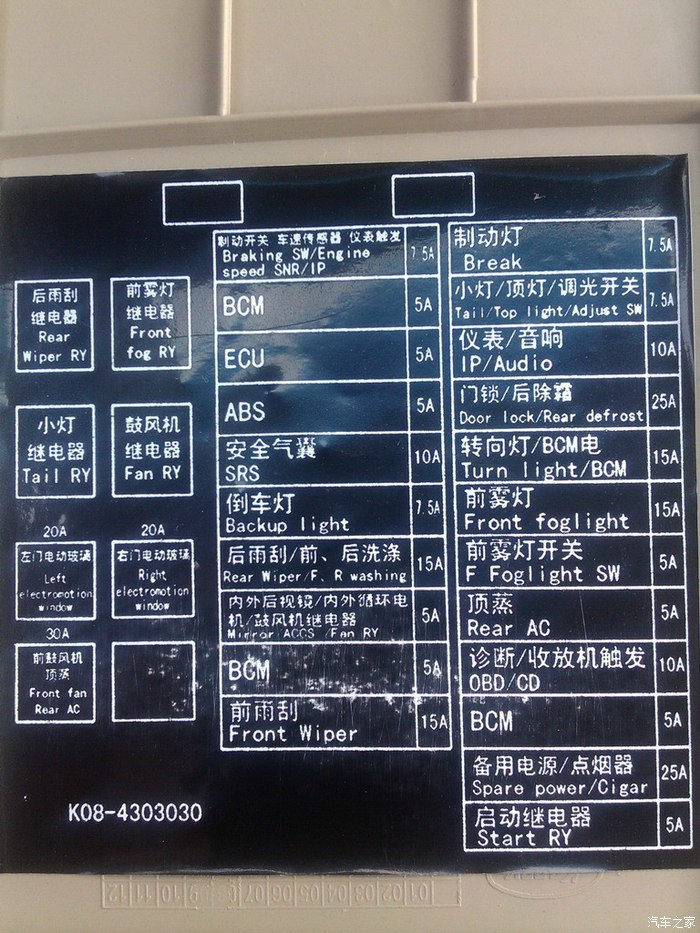 后雨刮
继电器
Rear
Wiper RY
前雾灯
继电器
Front
fog RY
小灯
继电器
Tail RY
鼓风机
继电器
Fan RY
20A
左门电动玻璃
Left
electromotion
window
20A
右门电动玻璃
Right
electromotion
window
30A
前鼓风机
顶蒸
Front fan
Rear AC
K08-4303030
制动开关 车速传感器 仪表触发
Braking SW/Engine
speed SNR/IP
7.5A
BCM
5A
ECU
5A
ABS
5A
安全气囊
SRS
10A
倒车灯
Backup light
7.5A
后雨刮/前、后洗涤
Rear Wiper/F、R washing
15A
内外后视镜/内外循环电
机/鼓风机继电器
Mirror/ACCS /Fan RY
5A
BCM
5A
前雨刮
Front Wiper
15A
制动灯
Break
7.5A
小灯/顶灯/调光开关
Tail/Top light/Adjust SW
7.5A
仪表/音响
IP/Audio
10A
门锁/后除霜
Door lock/Rear defrost
25A
转向灯/BCM电
Turn light/BCM
15A
前雾灯
Front foglight
15A
前雾灯开关
F Foglight SW
5A
顶蒸
Rear AC
5A
诊断/收放机触发
OBD/CD
10A
BCM
5A
备用电源/点烟器
Spare power/Cigar
25A
启动继电器
Start RY
5A
12 11 10 09 08 07 06 05 04 03 02 01
汽车之家